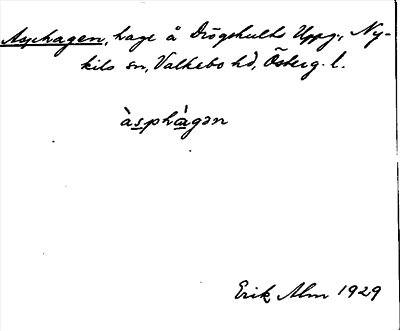 Asphagen, hage å Drögshults Uppg., Ny-
kils sn, Valkebo hd, Österg. l.
àsphágən
Erik Alm 1929